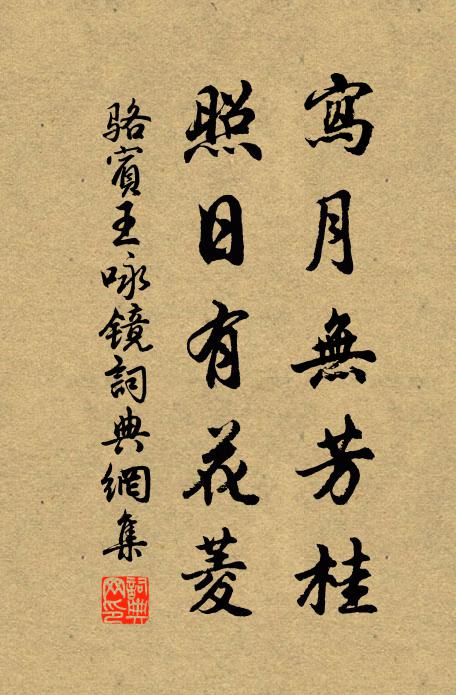 寫月無芳桂
照日有花菱
駱賓王咏镜詞典網集
詞典網印